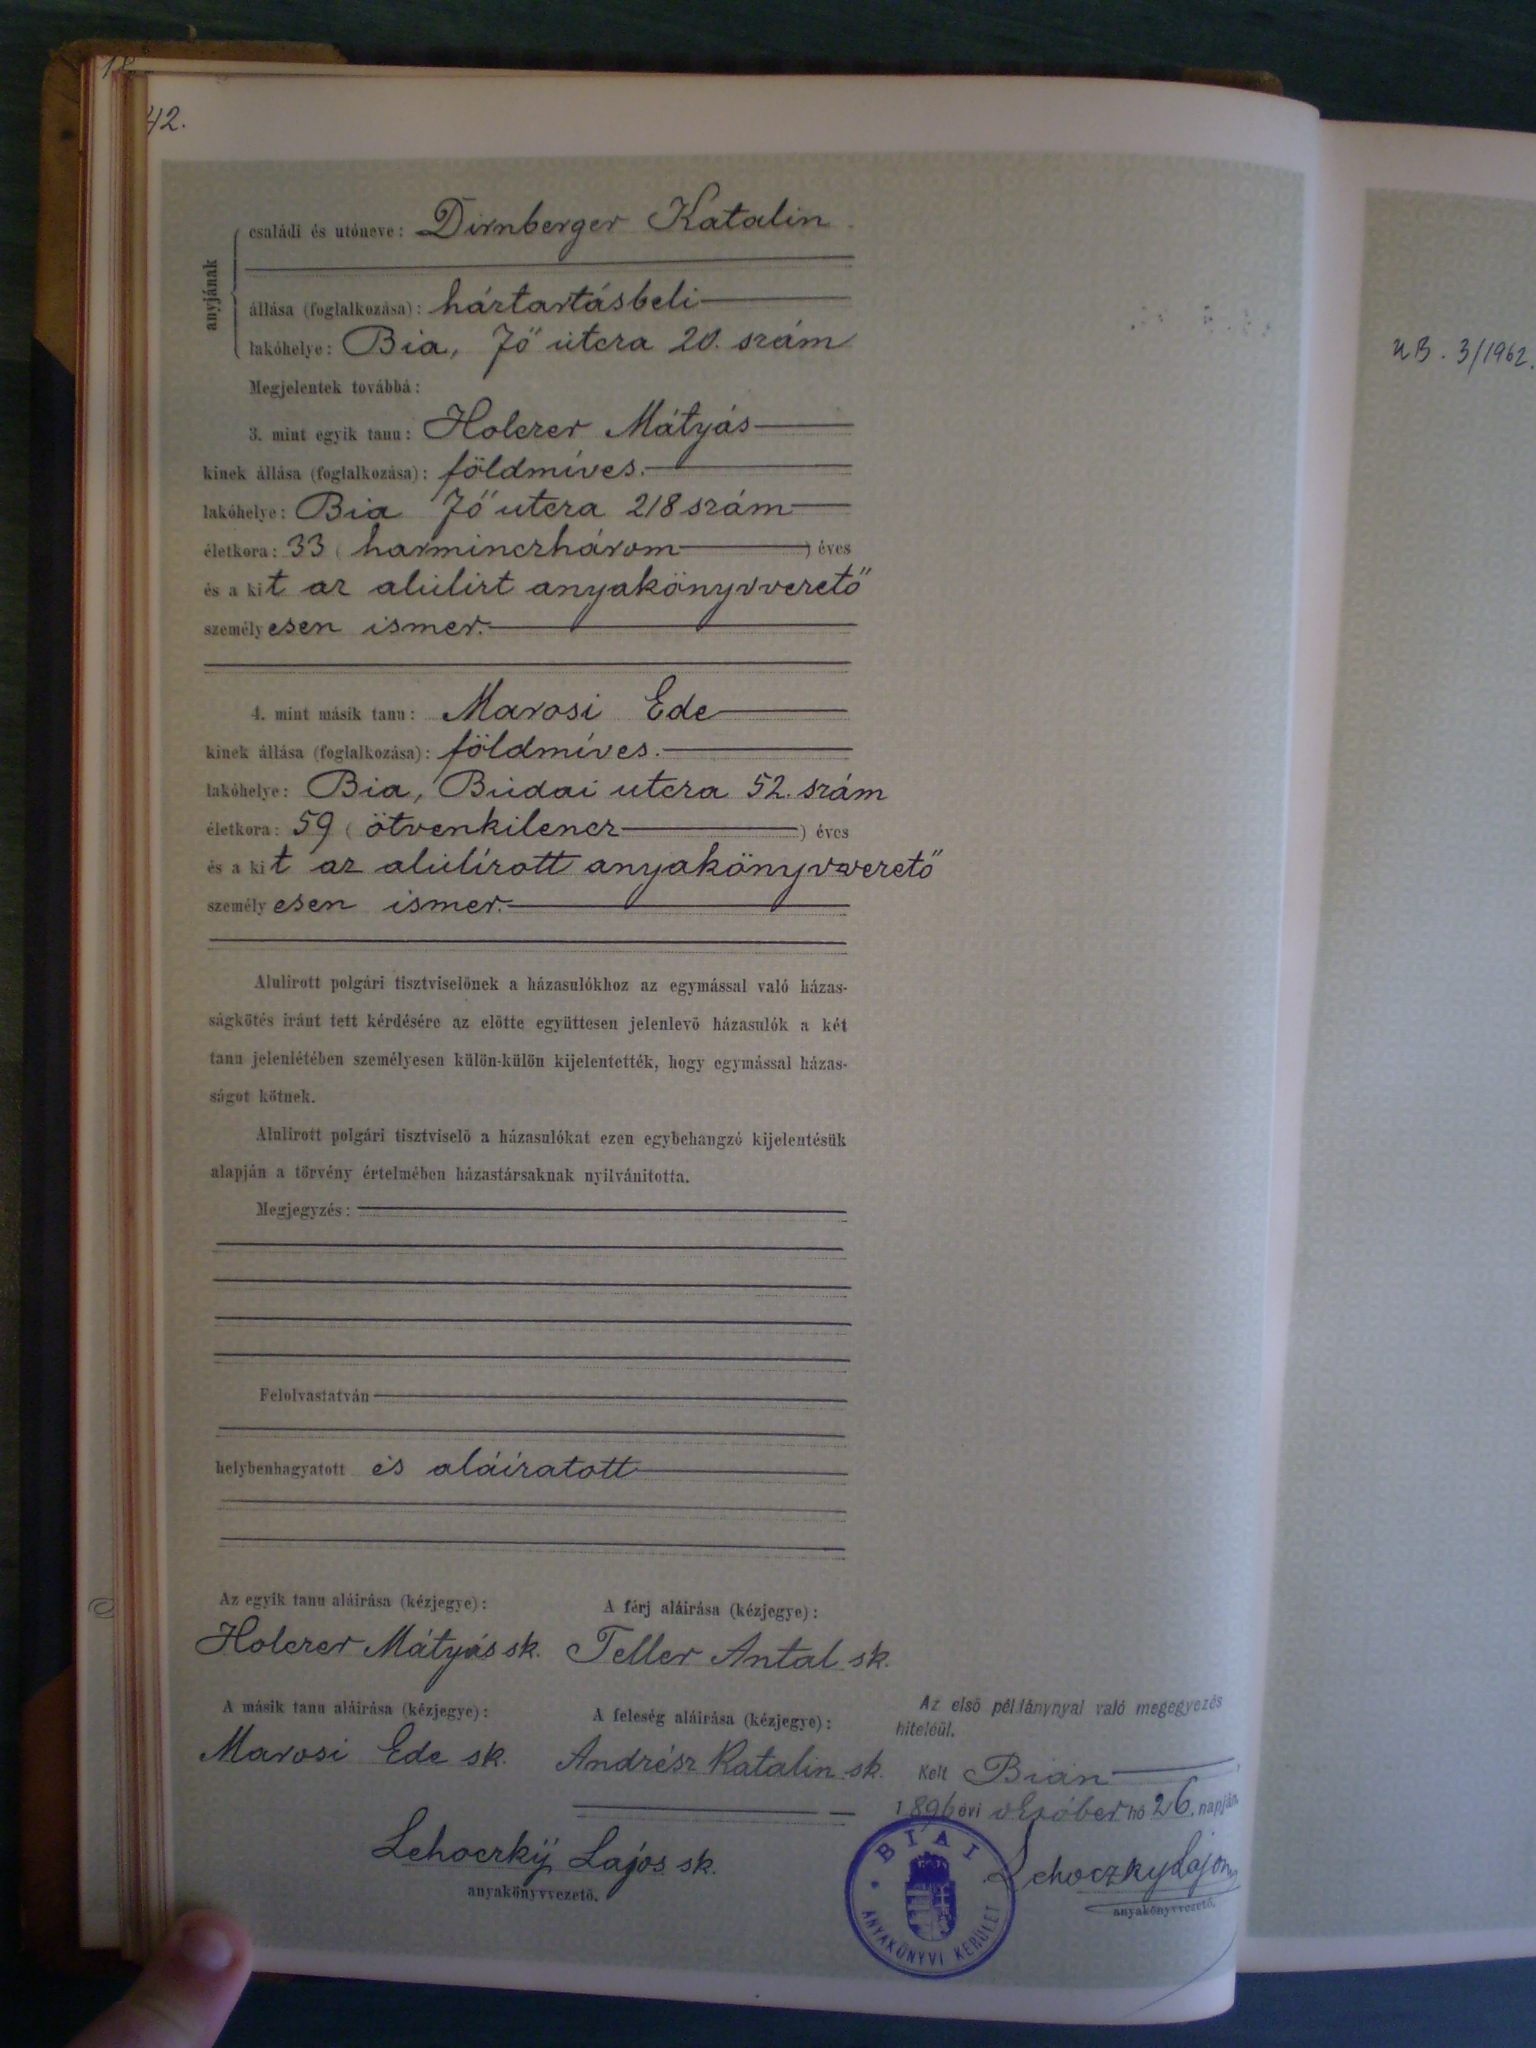 42.
anyjának
családi és utóneve: Dirnberger Katalin
állása (foglalkozása): háztartásbeli
lakóhelye: Bia, Fő utcza 20. szám
Megjelentek továbbá:
3. mint egyik tanu: Holczer Mátyás
kinek állása (foglalkozása): földmíves.
lakóhelye: Bia Fő utcza 218 szám
életkora: 33 (harminczhárom) éves
és a kit az alulirt anyakönyvvezető
személyesen ismer.
4. mint másik tanu: Marosi Ede
kinek állása (foglalkozása): földmíves.
lakóhelye: Bia, Budai utcza 52. szám
életkora: 59 (ötvenkilencz) éves
és a kit az alulírott anyakönyvvezető
személyesen ismer.
Alulirott polgári tisztviselönek a házasulókhoz az egymással való házas-
ságkötés iránt tett kérdésére az elötte együttesen jelenlevö házasulók a két
tanu jelenlétében személyesen külön-külön kijelentették, hogy egymással házas-
ságot kötnek.
Alulirott polgári tisztviselö a házasulókat ezen egybehangzó kijelentésük
alapján a törvény értelmében házastársaknak nyilvánitotta.
Megjegyzés:
Felolvastatván
helybenhagyatott és aláíratott
Az egyik tanu aláirása (kézjegye): A férj aláirása (kézjegye):
Holczer Mátyás sk. Teller Antal sk.
A másik tanu aláirása (kézjegye): A feleség aláirása (kézjegye):
Marosi Ede sk. Andrész Katalin sk.
Lehoczky Lajos sk.
anyakönyvvezetö.
Az elsö példánynyal való megegyezés
hiteléül.
Kelt Bián
1896 évi október hó 26. napján
Lehoczky Lajos
anyakönyvvezetö.
BIAI
ANYAKÖNYVI KERÜLET
UB. 3/1962.